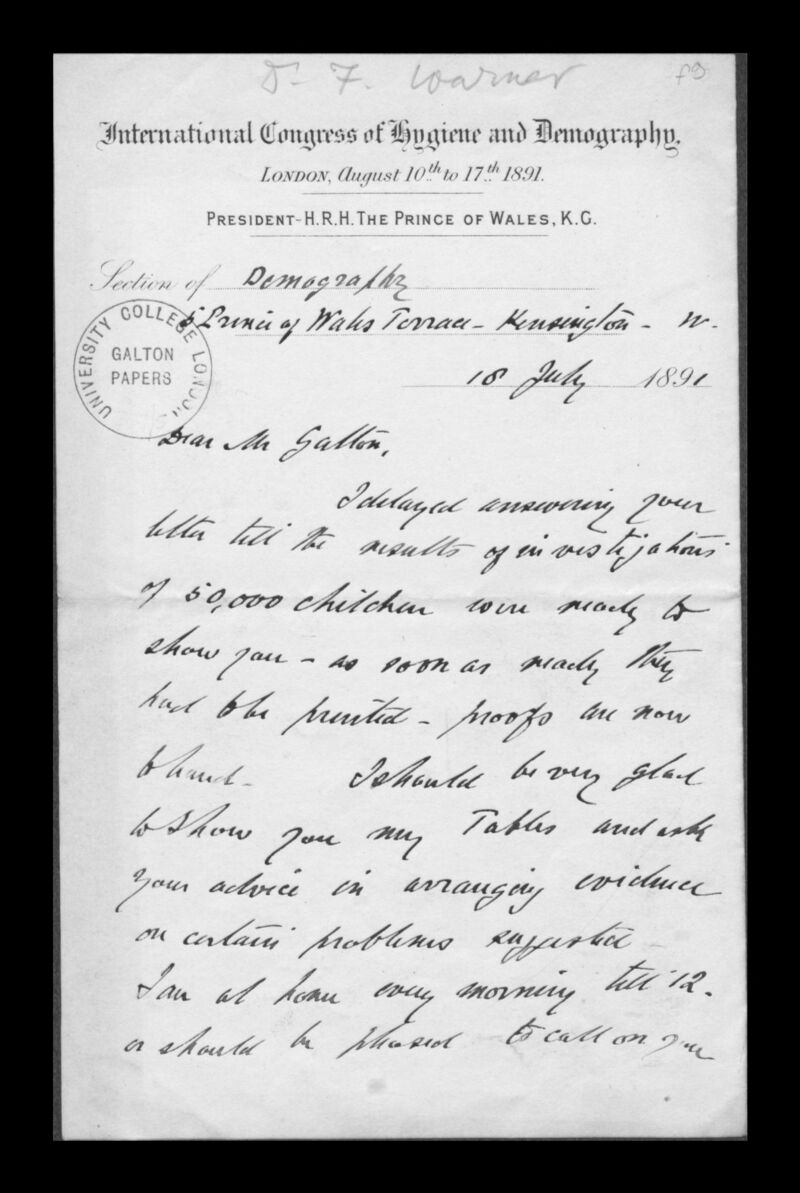 Dr. F. Warner
89
International Congress of Hygiene and Demography.
LONDON, August 10th to 17th 1891.
PRESIDENT-H.R.H. THE PRINCE OF WALES, K.G.
Section of Demography
5 Prince of Wales Terrace - Kensington - W.
UNIVERSITY COLLEGE LONDON
GALTON
PAPERS
18 July 1891
Dear Mr Galton,
I delayed answering your
letter till the results of investigations
of 50,000 children were ready to
show you - as soon as ready they
had to be printed - proofs are now
to hand - I should be very glad
to show you my Tables and ask
your advice in arranging evidence
on certain problems suggested -
I am at home every morning till 12.
or should be pleased to call on you